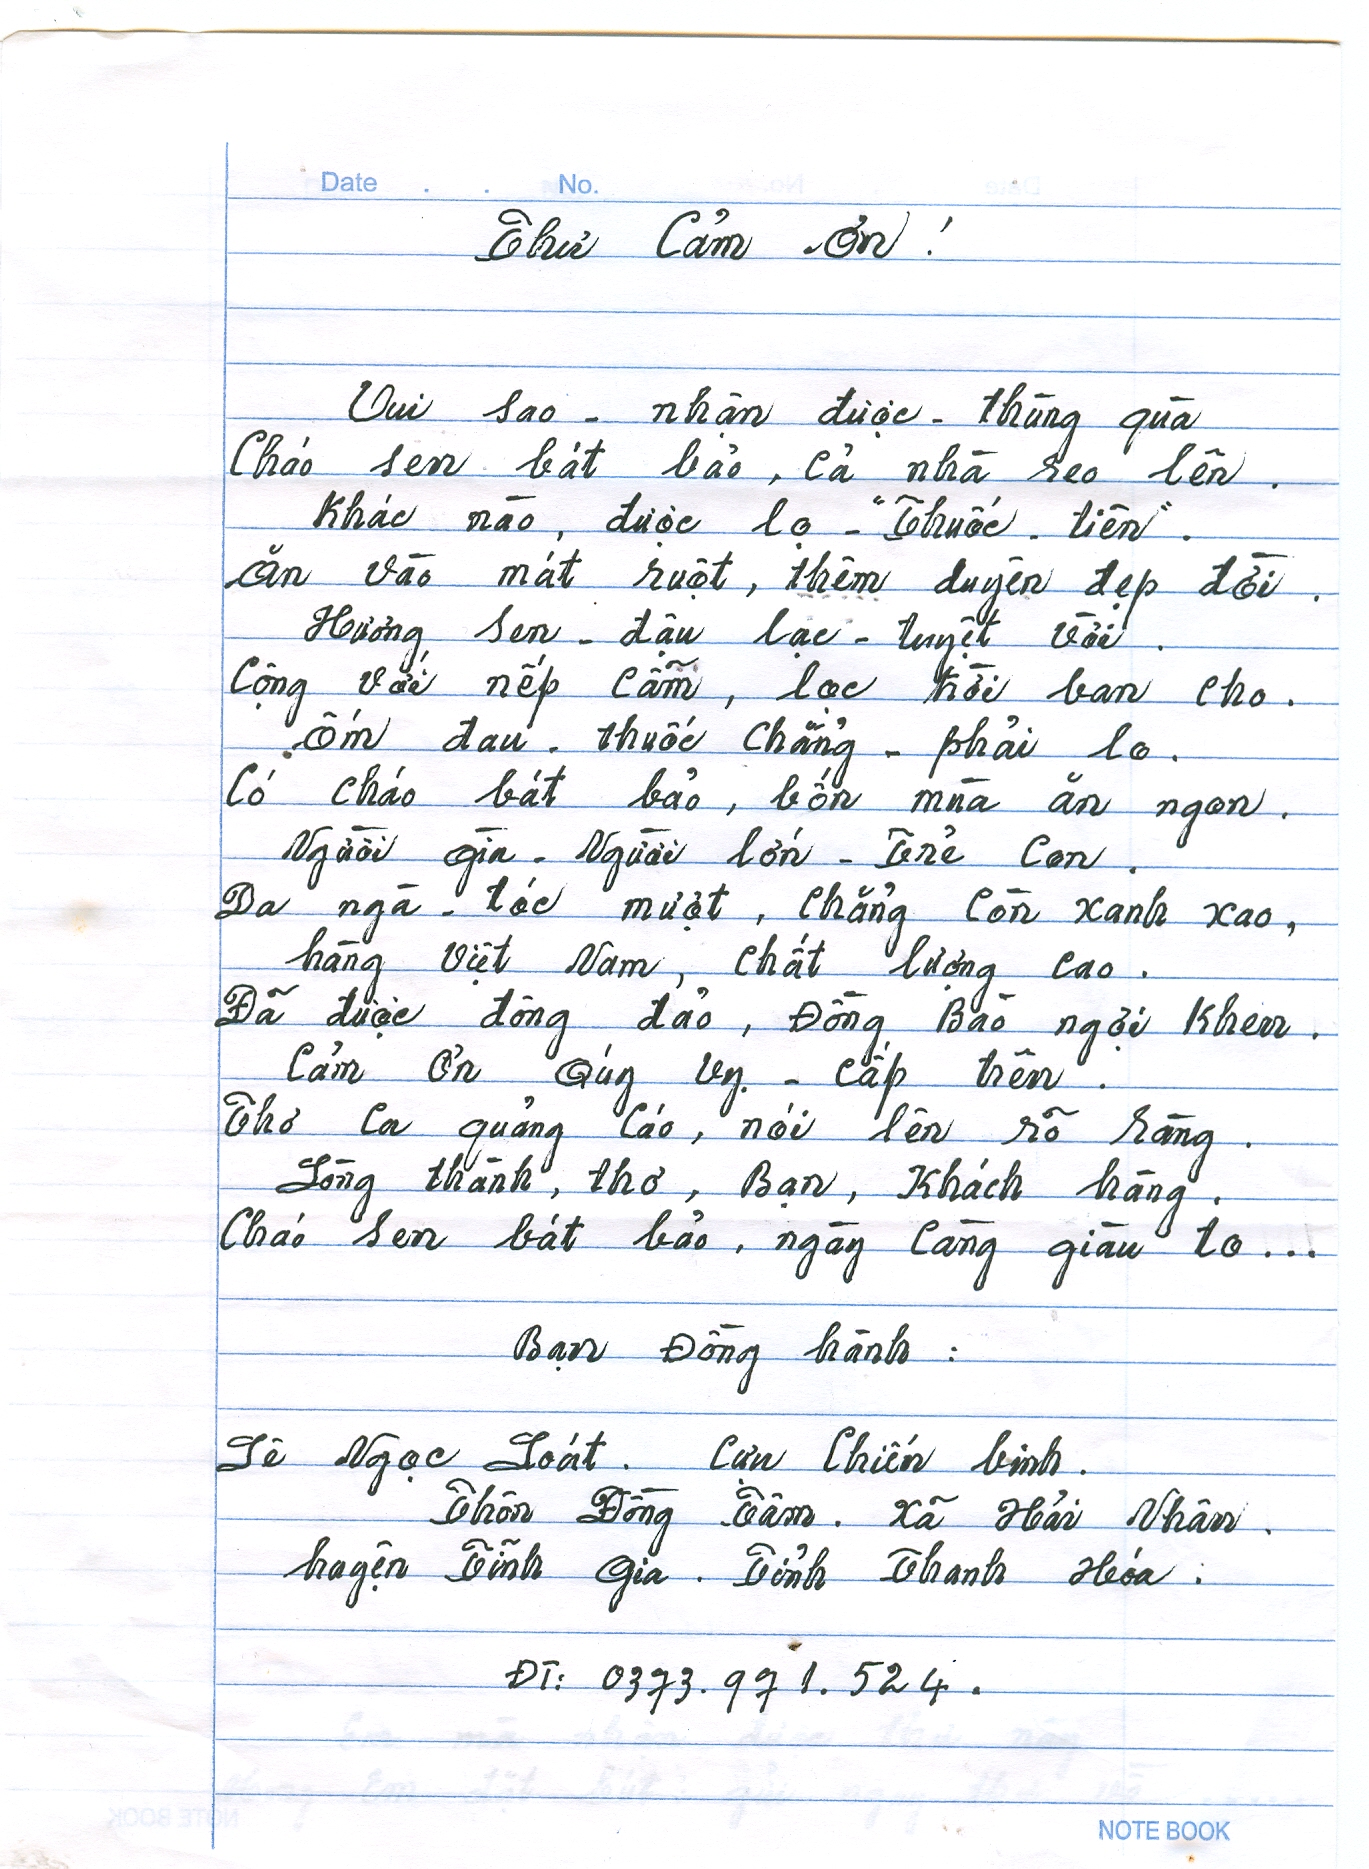 Date . . No.
Thư Cảm Ơn !
Vui sao - nhận được - thùng quà
Cháo sen bát bảo, cả nhà reo lên .
Khác nào, được lọ - "Thuốc - tiên" .
Ăn vào mát ruột, thêm duyên đẹp đời .
Hương sen - đậu lạc - tuyệt vời .
Cộng với nếp cẩm, lộc trời ban cho .
Ốm đau - thuốc chẳng - phải lo .
Có cháo bát bảo, bốn mùa ăn ngon .
Người già - Người lớn - Trẻ con .
Da ngà - tóc mượt, chẳng còn xanh xao,
hàng Việt Nam, chất lượng cao .
Đã được đông đảo, Đồng Bào ngợi khen .
Cảm ơn Qúy vỵ - cấp trên .
Thơ ca quảng cáo, nói lên rõ ràng .
Lòng thành, thơ, Bạn, Khách hàng .
Cháo sen bát bảo, ngày càng giàu to ...
Bạn Đồng hành :
Lê Ngọc Loát . Cựu Chiến binh .
Thôn Đồng Tâm . Xã Hải Nhân .
huyện Tĩnh Gia . Tỉnh Thanh Hóa .
ĐT: 0373.971.524 .
NOTE BOOK